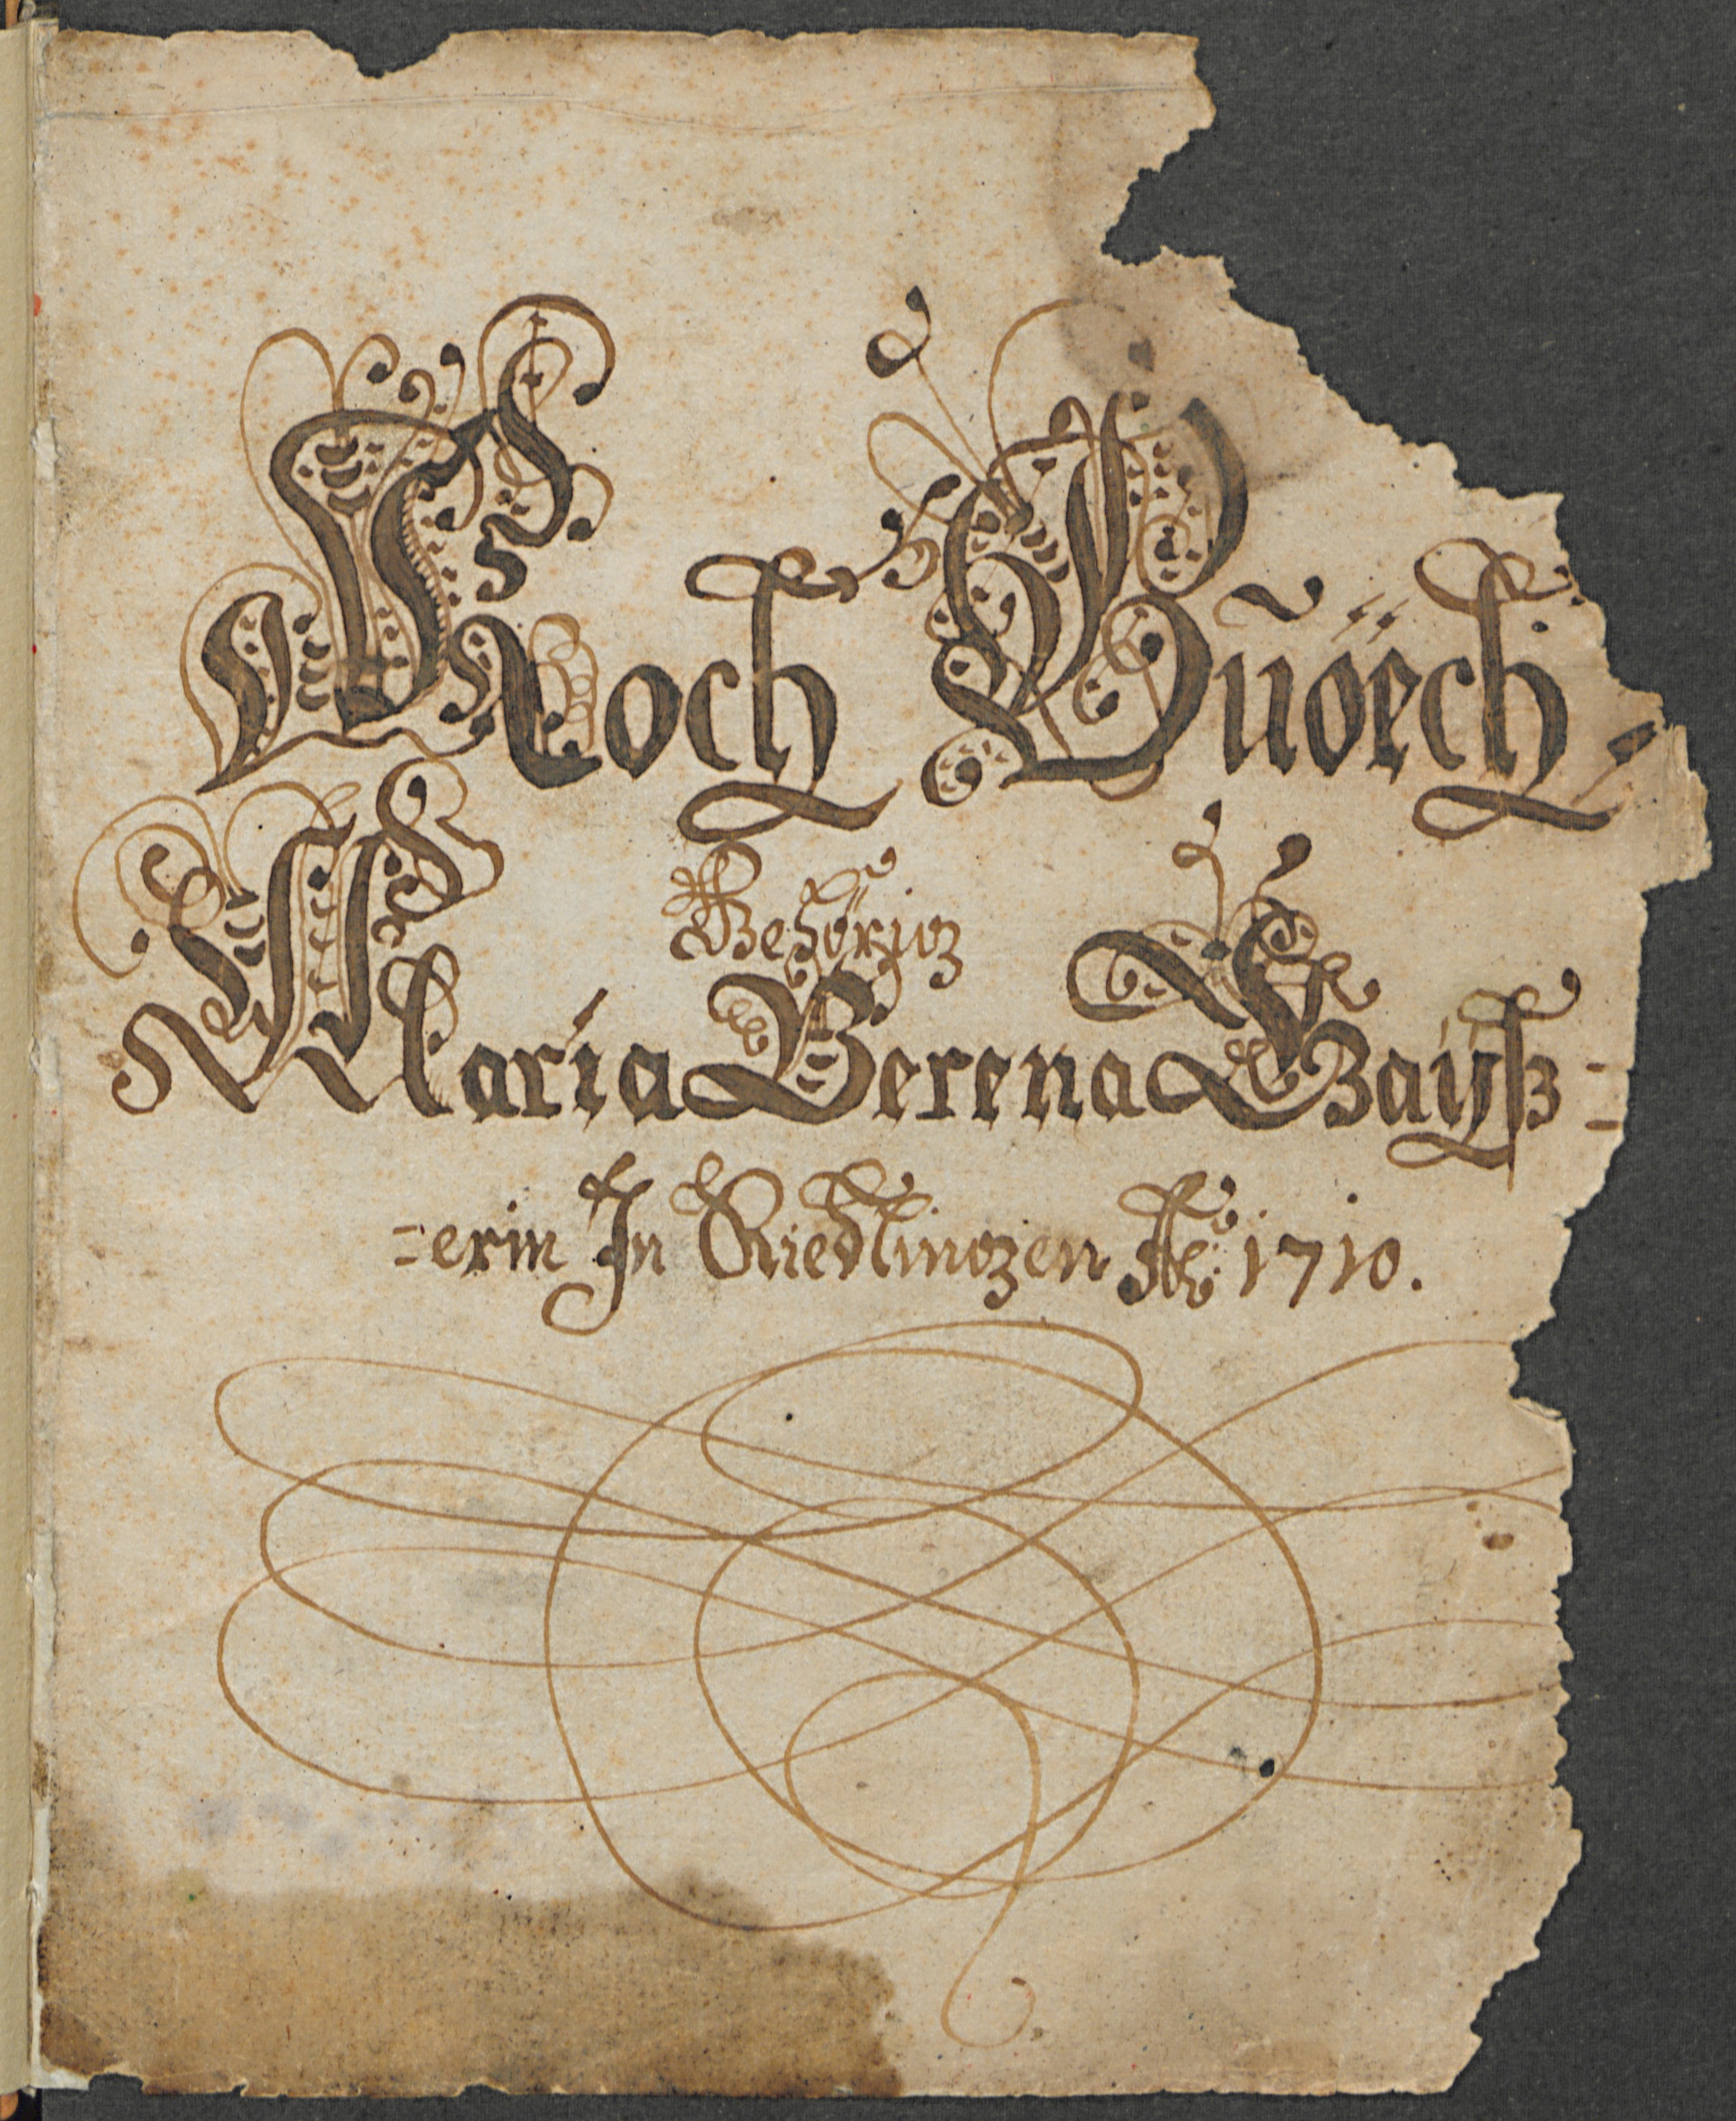 Koch Bũöech
Gehörig
Maria Verena Gaÿß=
=erin In Riedlingen Aõ: 1710.